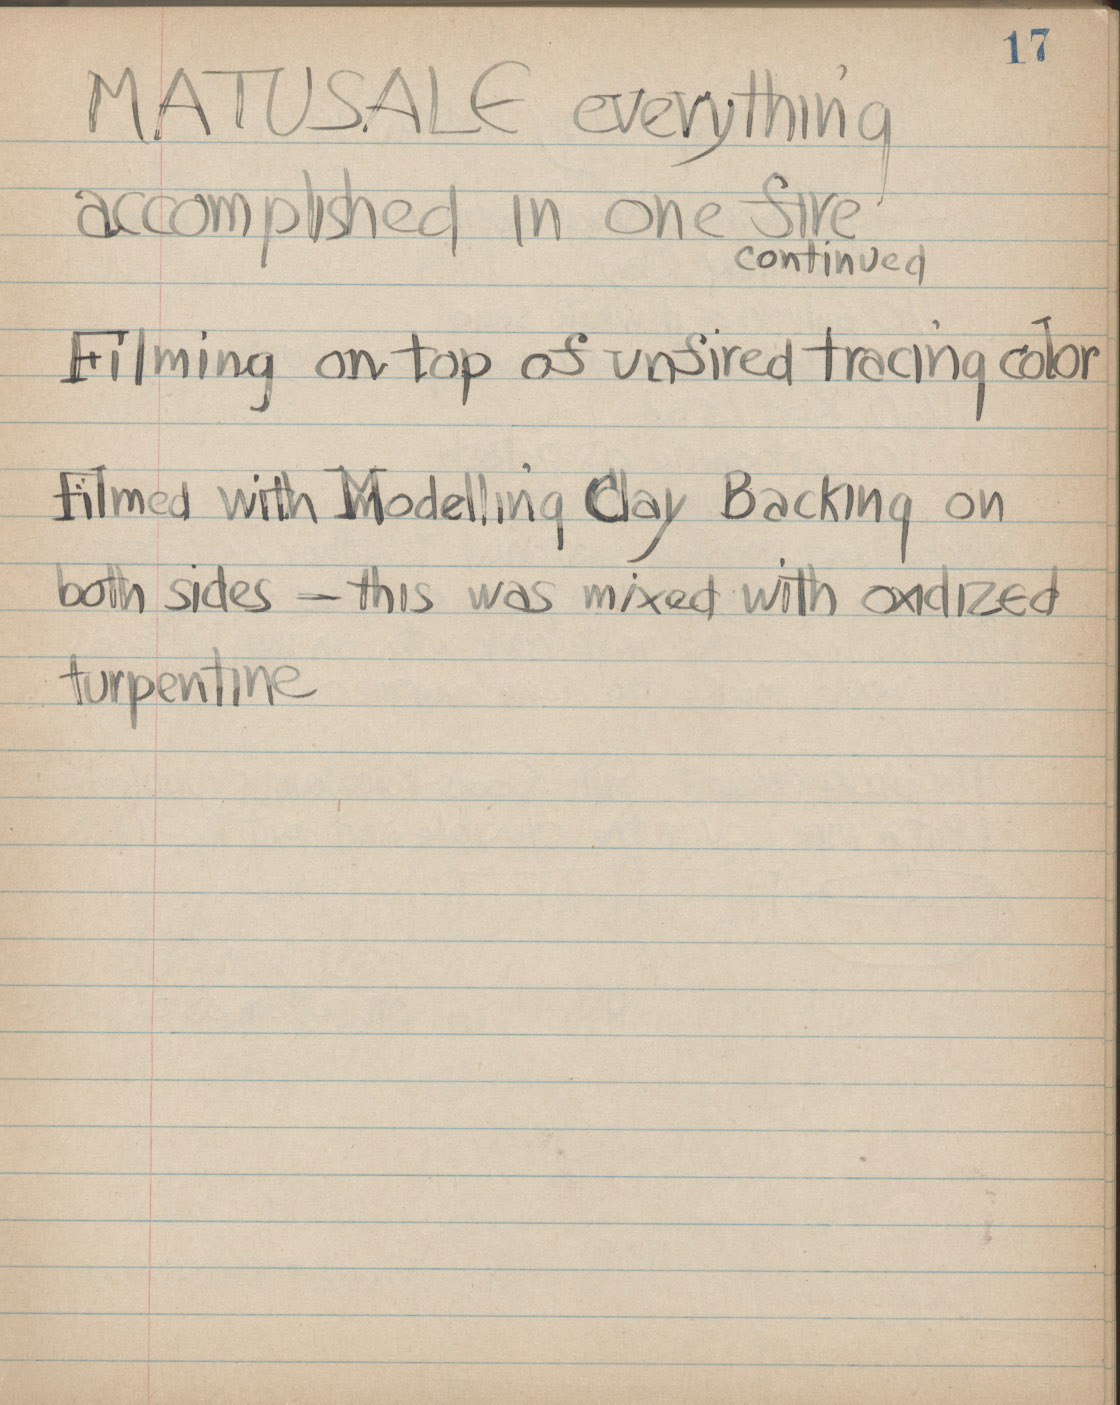 17
MATUSALE everything
accomplished in one fire
continued
Filming on top of unfired tracing color
Filmed with Modelling Clay Backing on
both sides – this was mixed with oxidized
turpentine